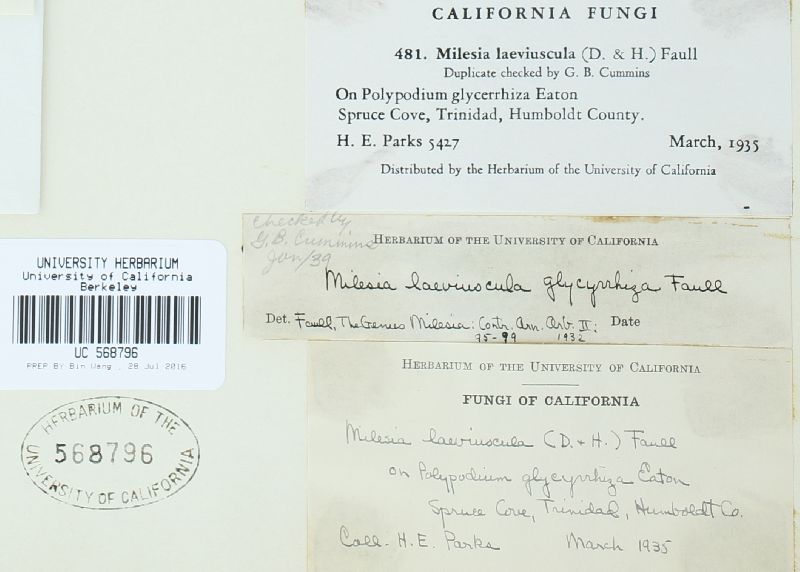 CALIFORNIA FUNGI
481. Milesia laeviuscula (D. & H.) Faull
Duplicate checked by G. B. Cummins
On Polypodium glycerrhiza Eaton
Spruce Cove, Trinidad, Humboldt County.
H. E. Parks 5427 March, 1935
Distributed by the Herbarium of the University of California
checked by
G. B. Cummins
Jan/39
HERBARIUM OF THE UNIVERSITY OF CALIFORNIA
Milesia laeviuscula glycyrrhiza Faull
Det. Faull, The Genus Milesia: Contr. Arn. Arb. II: Date
75-99 1932
UNIVERSITY HERBARIUM
University of California
Berkeley
UC 568796
PREP BY Bin Wang , 28 Jul 2016
HERBARIUM OF THE
568796
UNIVERSITY OF CALIFORNIA
HERBARIUM OF THE UNIVERSITY OF CALIFORNIA
FUNGI OF CALIFORNIA
Milesia laeviuscula (D. + H.) Faull
on Polypodium glycyrrhiza Eaton
Spruce Cove, Trinidad, Humboldt Co.
Coll. H. E. Parks March 1935